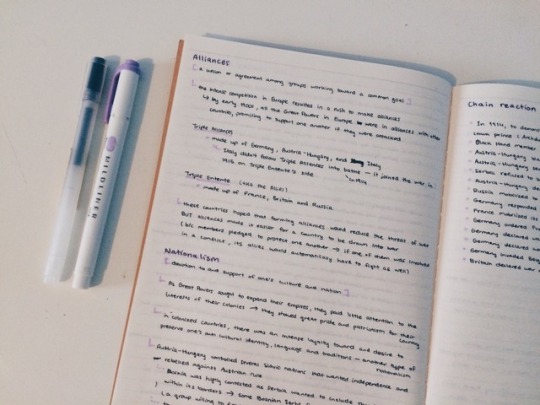 MILDLINER
Alliances
a union or agreement among groups working toward a common goal
the intense competition in Europe resulted in a rush to make alliances
↳ By early 1900s, all the Great Powers in Europe were in alliances with other
countries, promising to support one another if they were attacked
Triple Alliance
made up of Germany, Austria-Hungary, and Italy
Italy didn't follow Triple Alliance into battle — it joined the war in
1915 on Triple Entente's side
Triple Entente
made up of France, Britain and Russia
these countries hoped that forming alliances would reduce the threat of war
BUT alliances made it easier for a country to be drawn into war
(b/c members pledged to protect one another → if one of them was involved
in a conflict, its allies would automatically have to fight as well)
Nationalism
devotion to and support of one's culture and nation
As Great Powers sought to expand their empires, they paid little attention to the
interests of their colonies → they showed great pride and patriotism for their
country
in colonized countries, there was an intense loyalty toward and desire to
preserve one's own cultural identity, language and traditions — another type of
nationalism
Austria-Hungary controlled several Slavic nations that wanted independence and
rebelled against Austrian rule
Bosnia was highly contested as Serbia wanted to include
within its borders → some Bosnian Serbs
a group willing to
Chain reaction
In 1914, to
crown prince
Black Hand member
Austria-Hungary
Austria-Hungary
Serbia refused
Austria-Hungary
Russia
Germany responded
France mobilizes its
Germany ordered
Germany declared
Germany declared
Germany invaded
Britain declared war